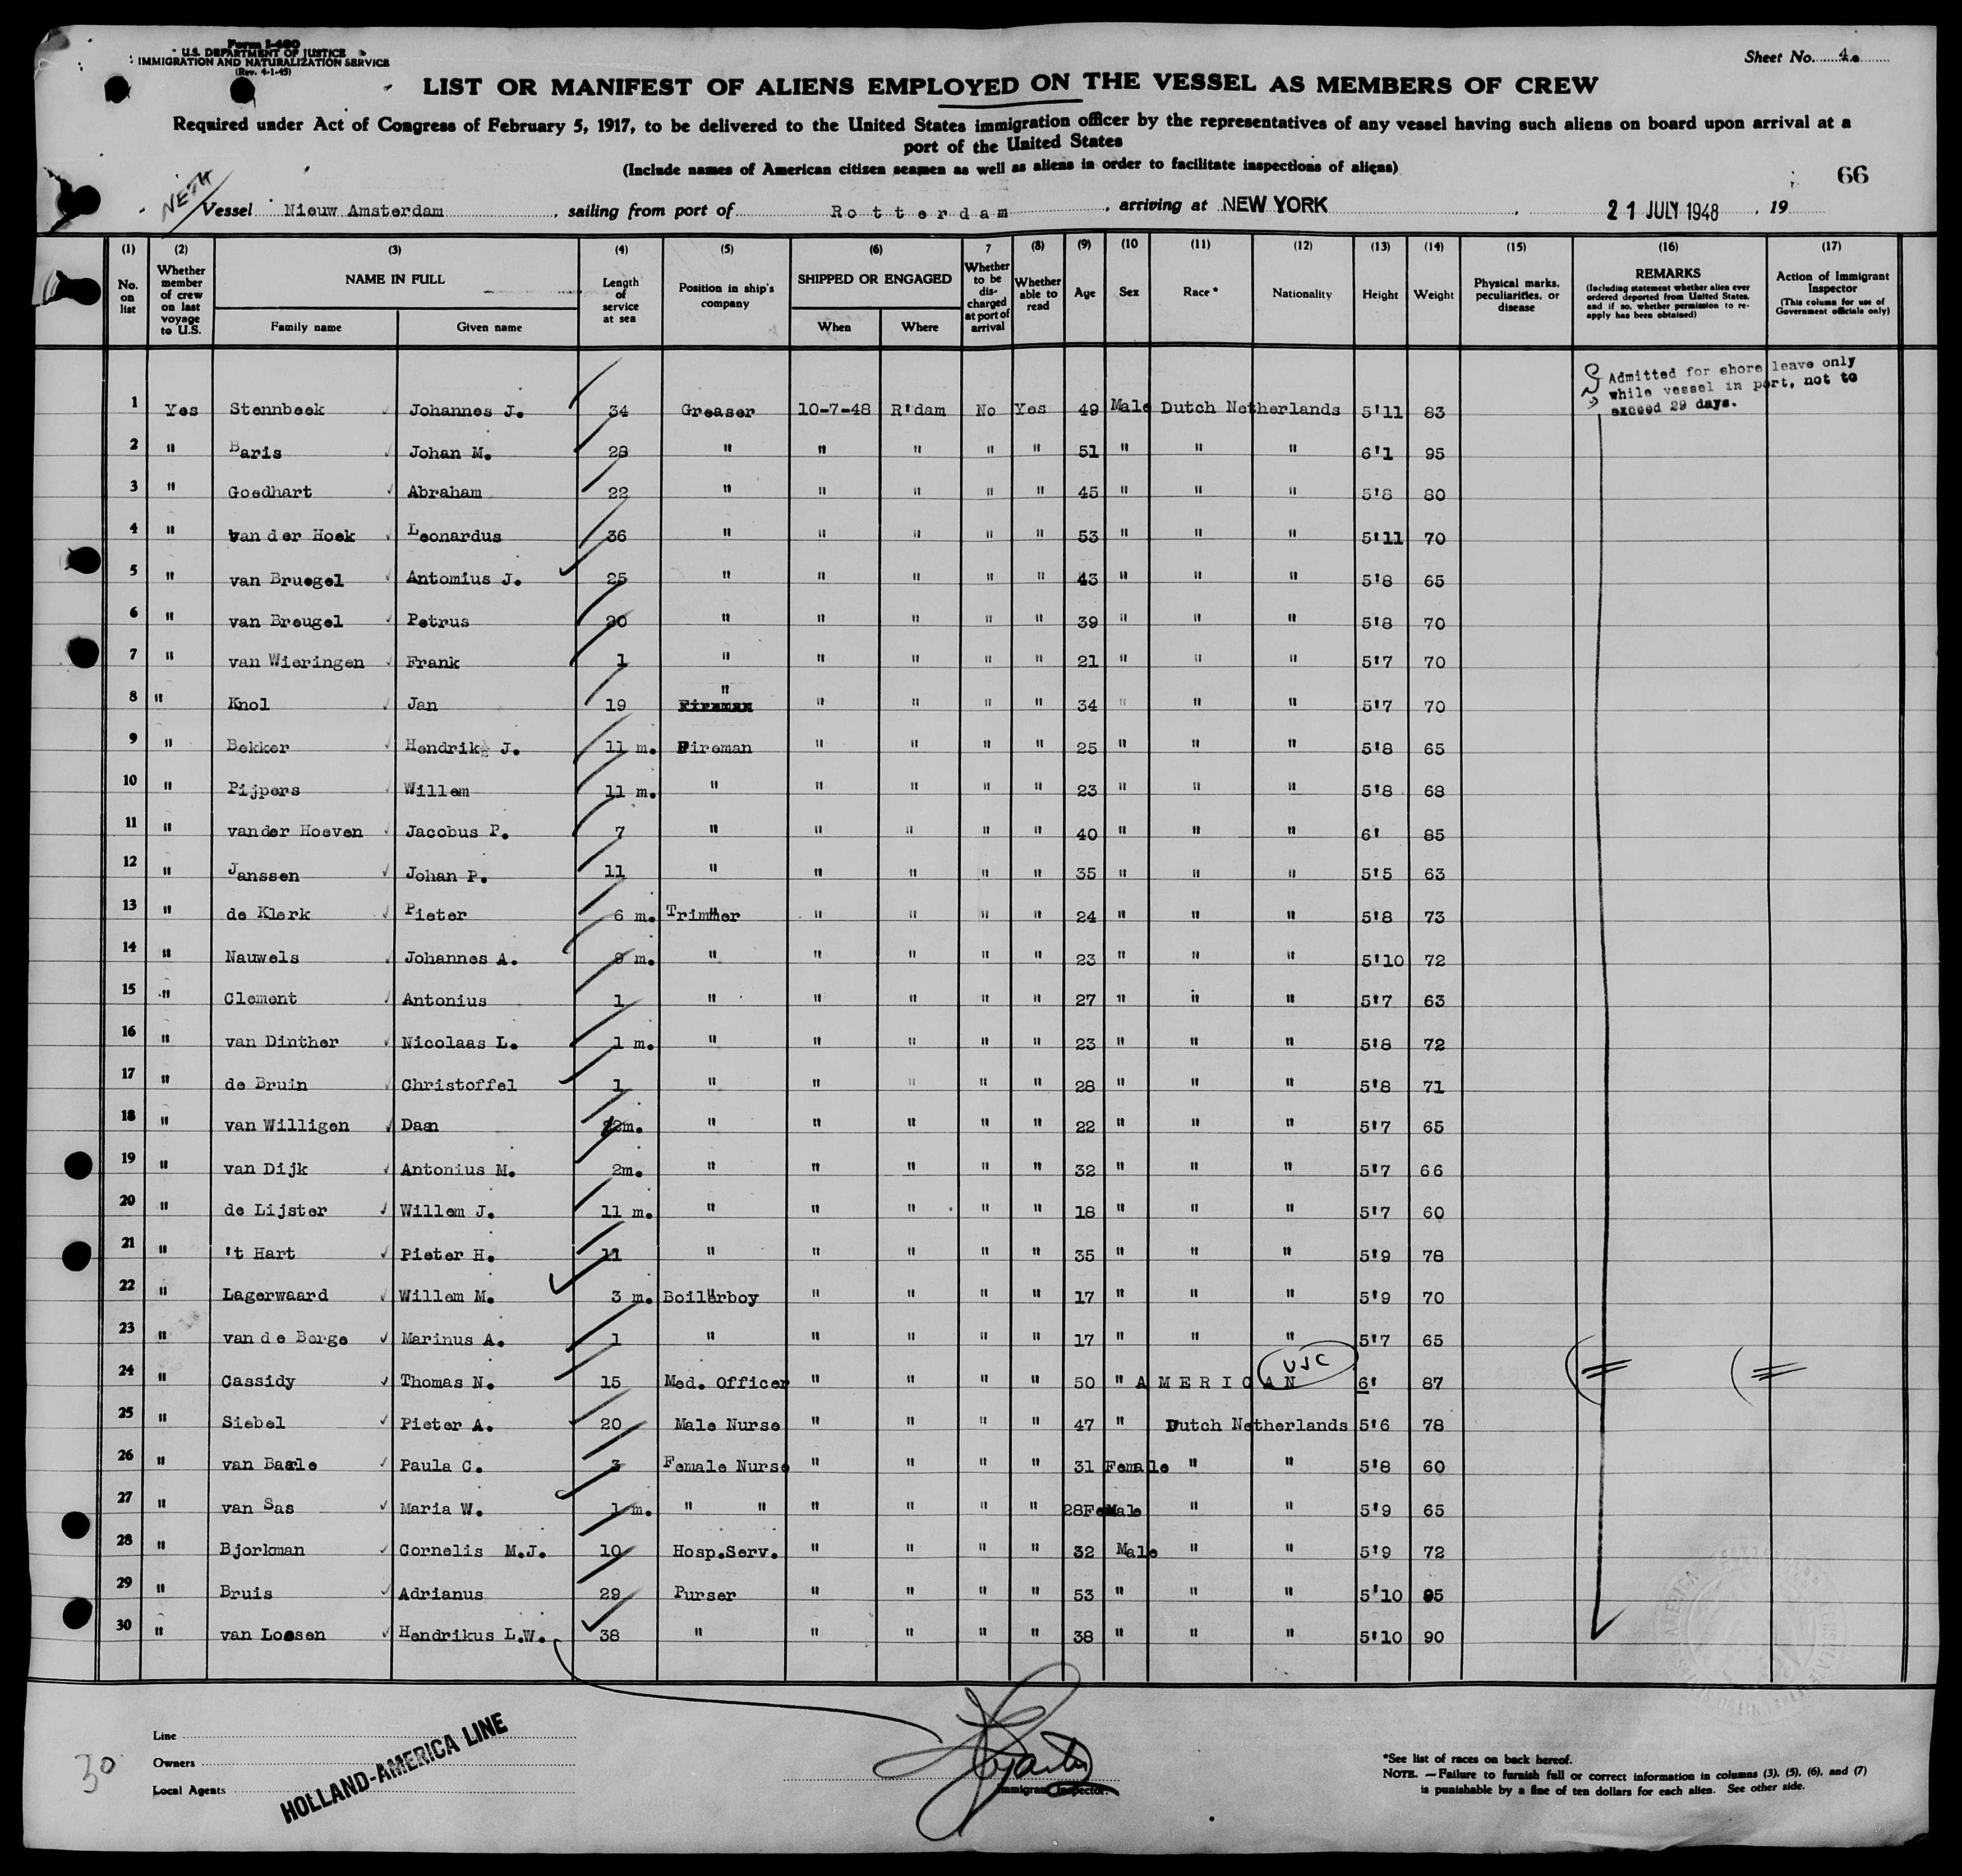 Form I-480
U.S. DEPARTMENT OF JUSTICE
IMMIGRATION AND NATURALIZATION SERVICE
(Rev. 4-1-45)
Sheet No. 4.
LIST OR MANIFEST OF ALIENS EMPLOYED ON THE VESSEL AS MEMBERS OF CREW
Required under Act of Congress of February 5, 1917, to be delivered to the United States immigration officer by the representatives of any vessel having such aliens on board upon arrival at a
port of the United States
(Include names of American citizen seamen as well as aliens in order to facilitate inspections of aliens)
66
NETH
Vessel Nieuw Amsterdam, sailing from port of Rotterdam, arriving at NEW YORK, 21 JULY 1948, 19
(1) (2) (3) (4) (5) (6) 7 (8) (9) (10 (11) (12) (13) (14) (15) (16) (17)
No. on list
Whether member of crew on last voyage to U.S.
NAME IN FULL
Family name Given name
Length of service at sea
Position in ship's company
SHIPPED OR ENGAGED
When Where
Whether to be discharged at port of arrival
Whether able to read
Age
Sex
Race*
Nationality
Height
Weight
Physical marks, peculiarities, or disease
REMARKS
(Including statement whether alien ever ordered deported from United States, and if so, whether permission to re-apply has been obtained)
Action of Immigrant Inspector
(This column for use of Government officials only)
Admitted for shore leave only
while vessel in port, not to
exceed 29 days.
1 Yes Stennbeek Johannes J. 34 Greaser 10-7-48 R'dam No Yes 49 Male Dutch Netherlands 5'11 83
2 " Baris Johan M. 28 " " " " " 51 " " " 6'1 95
3 " Goedhart Abraham 22 " " " " " 45 " " " 5'8 80
4 " van der Hoek Leonardus 36 " " " " " 53 " " " 5'11 70
5 " van Bruegel Antomius J. 25 " " " " " 43 " " " 5'8 65
6 " van Breugel Petrus 20 " " " " " 39 " " " 5'8 70
7 " van Wieringen Frank 1 " " " " " 21 " " " 5'7 70
8 " Knol Jan 19 " " " " " 34 " " " 5'7 70
9 " Bekker Hendrik J. 11 m. Fireman " " " " 25 " " " 5'8 65
10 " Pijpers Willem 11 m. " " " " " 23 " " " 5'8 68
11 " vander Hoeven Jacobus P. 7 " " " " " 40 " " " 6' 85
12 " Janssen Johan P. 11 " " " " " 35 " " " 5'5 63
13 " de Klerk Pieter 6 m. Trimmer " " " " 24 " " " 5'8 73
14 " Nauwels Johannes A. 9 m. " " " " " 23 " " " 5'10 72
15 " Clement Antonius 1 " " " " " 27 " " " 5'7 63
16 " van Dinther Nicolaas L. 1 m. " " " " " 23 " " " 5'8 72
17 " de Bruin Christoffel 1 " " " " " 28 " " " 5'8 71
18 " van Willigen Daan m. " " " " " 22 " " " 5'7 65
19 " van Dijk Antonius M. 2m. " " " " " 32 " " " 5'7 66
20 " de Lijster Willem J. 11 m. " " " " " 18 " " " 5'7 60
21 " 't Hart Pieter H. 11 " " " " " 35 " " " 5'9 78
22 " Lagerwaard Willem M. 3 m. Boilerboy " " " " 17 " " " 5'9 70
23 " van de Berge Marinus A. 1 " " " " " 17 " " " 5'7 65
24 " Cassidy Thomas N. 15 Med. Officer " " " " 50 " AMERICAN USC 6' 87
25 " Siebel Pieter A. 20 Male Nurse " " " " 47 " Dutch Netherlands 5'6 78
26 " van Baarle Paula C. 3 Female Nurse " " " " 31 Female " " 5'8 60
27 " van Sas Maria W. 1 m. " " " " " " 28 Female " " 5'9 65
28 " Bjorkman Cornelis M.J. 10 Hosp.Serv. " " " " 32 Male " " 5'9 72
29 " Bruis Adrianus 29 Purser " " " " 53 " " " 5'10 95
30 " van Loosen Hendrikus L.W. 38 " " " " " 38 " " " 5'10 90
Line
Owners
Local Agents
HOLLAND-AMERICA LINE
30
Immigrant Inspector.
*See list of races on back hereof.
NOTE. —Failure to furnish full or correct information in columns (3), (5), (6), and (7)
is punishable by a fine of ten dollars for each alien. See other side.